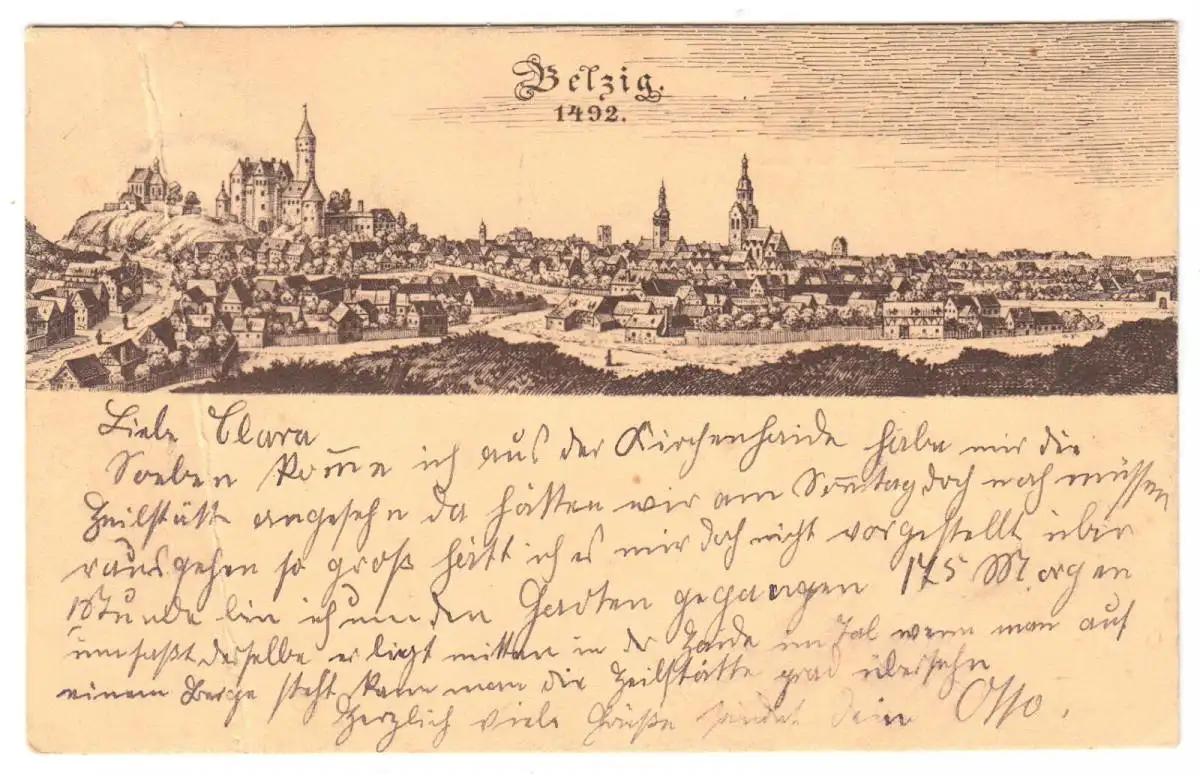 Belzig.
1492.
Liebe Clara
Soeben kom̄e ich aus der Kirchenhaide habe mir die
Heilstätte angesehn da hätten wir am Son̄tag doch noch müssen
rausgehen so groß hätt ich es mir doch nicht vorgestellt über
1 Stunde bin ich um den Garten gegangen 175 Morgen
umfaßt derselbe er liegt mitten in der Haide im Tal wenn man auf
einem Berge steht kann man die Heilstätte grad übersehn
Herzlich viele Grüße sendet dein Otto.